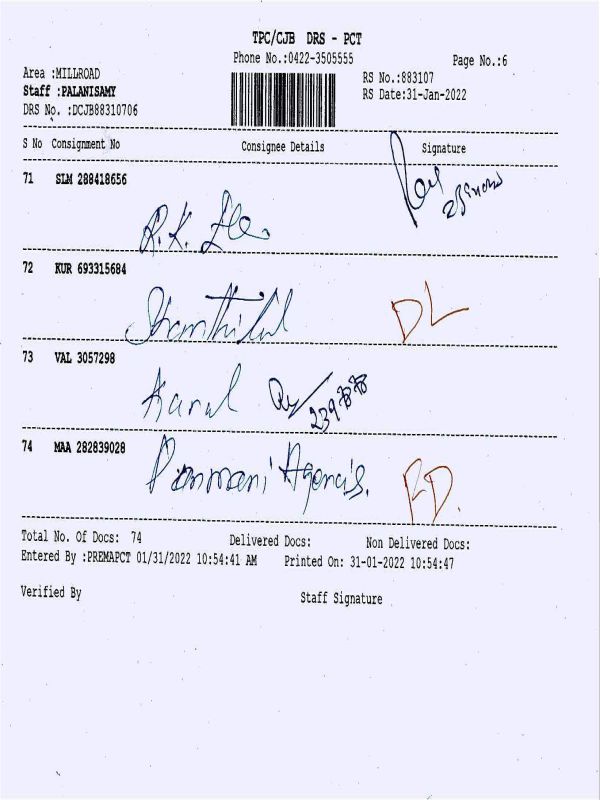 TPC/CJB DRS - PCT
Phone No.:0422-3505555
Page No.:6
Area :MILLROAD
RS No.:883107
Staff :PALANISAMY
RS Date:31-Jan-2022
DRS No. :DCJB88310706
S No Consignment No Consignee Details Signature
71 SLM 288418656
R.K.
72 KUR 693315684
DL
73 VAL 3057298
74 MAA 282839028
Ponmani Agencis.
Total No. Of Docs: 74 Delivered Docs: Non Delivered Docs:
Entered By :PREMAPCT 01/31/2022 10:54:41 AM Printed On: 31-01-2022 10:54:47
Verified By Staff Signature